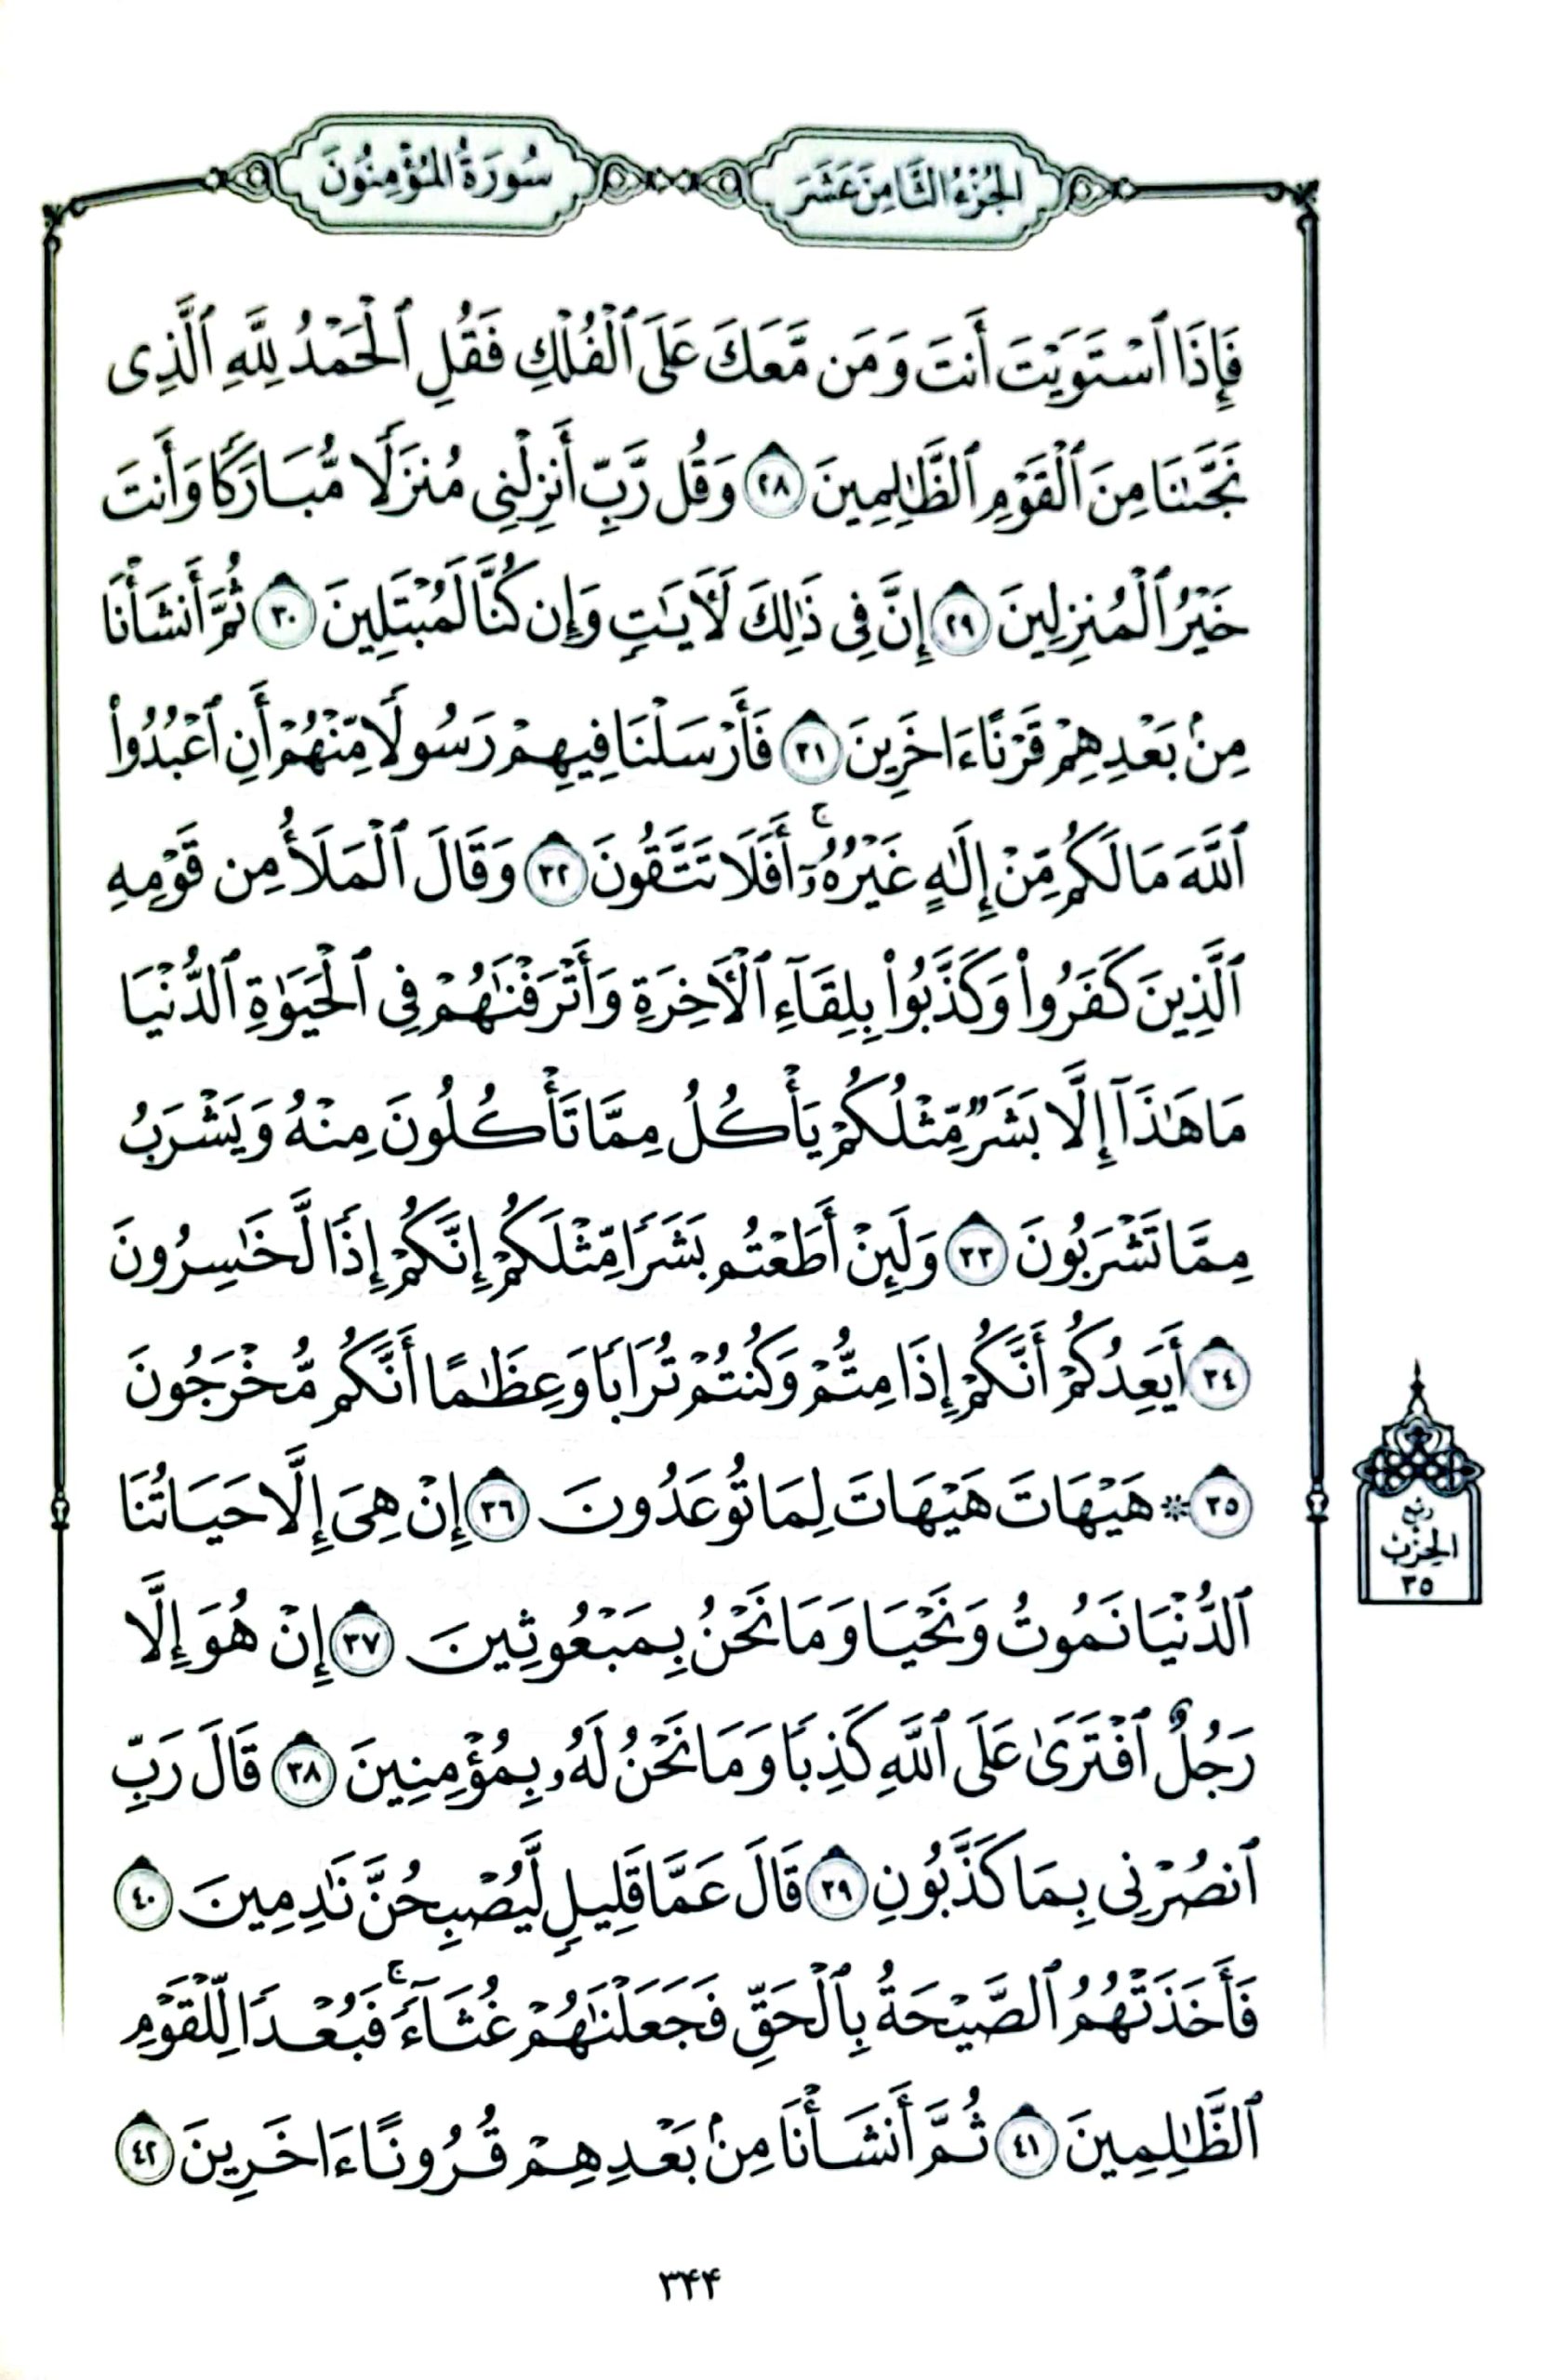 الجُزْءُ الثَّامِنَ عَشَرَ
سُورَةُ المُؤْمِنُونَ
فَإِذَا ٱسْتَوَيْتَ أَنتَ وَمَن مَّعَكَ عَلَى ٱلْفُلْكِ فَقُلِ ٱلْحَمْدُ لِلَّهِ ٱلَّذِى
نَجَّىٰنَا مِنَ ٱلْقَوْمِ ٱلظَّٰلِمِينَ ٢٨ وَقُل رَّبِّ أَنزِلْنِى مُنزَلًا مُّبَارَكًا وَأَنتَ
خَيْرُ ٱلْمُنزِلِينَ ٢٩ إِنَّ فِى ذَٰلِكَ لَـَٔايَٰتٍ وَإِن كُنَّا لَمُبْتَلِينَ ٣٠ ثُمَّ أَنشَأْنَا
مِنۢ بَعْدِهِمْ قَرْنًا ءَاخَرِينَ ٣١ فَأَرْسَلْنَا فِيهِمْ رَسُولًا مِّنْهُمْ أَنِ ٱعْبُدُوا۟
ٱللَّهَ مَا لَكُم مِّنْ إِلَٰهٍ غَيْرُهُۥٓ ۚ أَفَلَا تَتَّقُونَ ٣٢ وَقَالَ ٱلْمَلَأُ مِن قَوْمِهِ
ٱلَّذِينَ كَفَرُوا۟ وَكَذَّبُوا۟ بِلِقَآءِ ٱلْـَٔاخِرَةِ وَأَتْرَفْنَٰهُمْ فِى ٱلْحَيَوٰةِ ٱلدُّنْيَا
مَا هَٰذَآ إِلَّا بَشَرٌ مِّثْلُكُمْ يَأْكُلُ مِمَّا تَأْكُلُونَ مِنْهُ وَيَشْرَبُ
مِمَّا تَشْرَبُونَ ٣٣ وَلَئِنْ أَطَعْتُم بَشَرًا مِّثْلَكُمْ إِنَّكُمْ إِذًا لَّخَٰسِرُونَ
٣٤ أَيَعِدُكُمْ أَنَّكُمْ إِذَا مِتُّمْ وَكُنتُمْ تُرَابًا وَعِظَٰمًا أَنَّكُم مُّخْرَجُونَ
٣٥ ۞ هَيْهَاتَ هَيْهَاتَ لِمَا تُوعَدُونَ ٣٦ إِنْ هِىَ إِلَّا حَيَاتُنَا
ٱلدُّنْيَا نَمُوتُ وَنَحْيَا وَمَا نَحْنُ بِمَبْعُوثِينَ ٣٧ إِنْ هُوَ إِلَّا
رَجُلٌ ٱفْتَرَىٰ عَلَى ٱللَّهِ كَذِبًا وَمَا نَحْنُ لَهُۥ بِمُؤْمِنِينَ ٣٨ قَالَ رَبِّ
ٱنصُرْنِى بِمَا كَذَّبُونِ ٣٩ قَالَ عَمَّا قَلِيلٍ لَّيُصْبِحُنَّ نَٰدِمِينَ ٤٠
فَأَخَذَتْهُمُ ٱلصَّيْحَةُ بِٱلْحَقِّ فَجَعَلْنَٰهُمْ غُثَآءً ۚ فَبُعْدًا لِّلْقَوْمِ
ٱلظَّٰلِمِينَ ٤١ ثُمَّ أَنشَأْنَا مِنۢ بَعْدِهِمْ قُرُونًا ءَاخَرِينَ ٤٢
ربع
الحزب
٣٥
۳۴۴